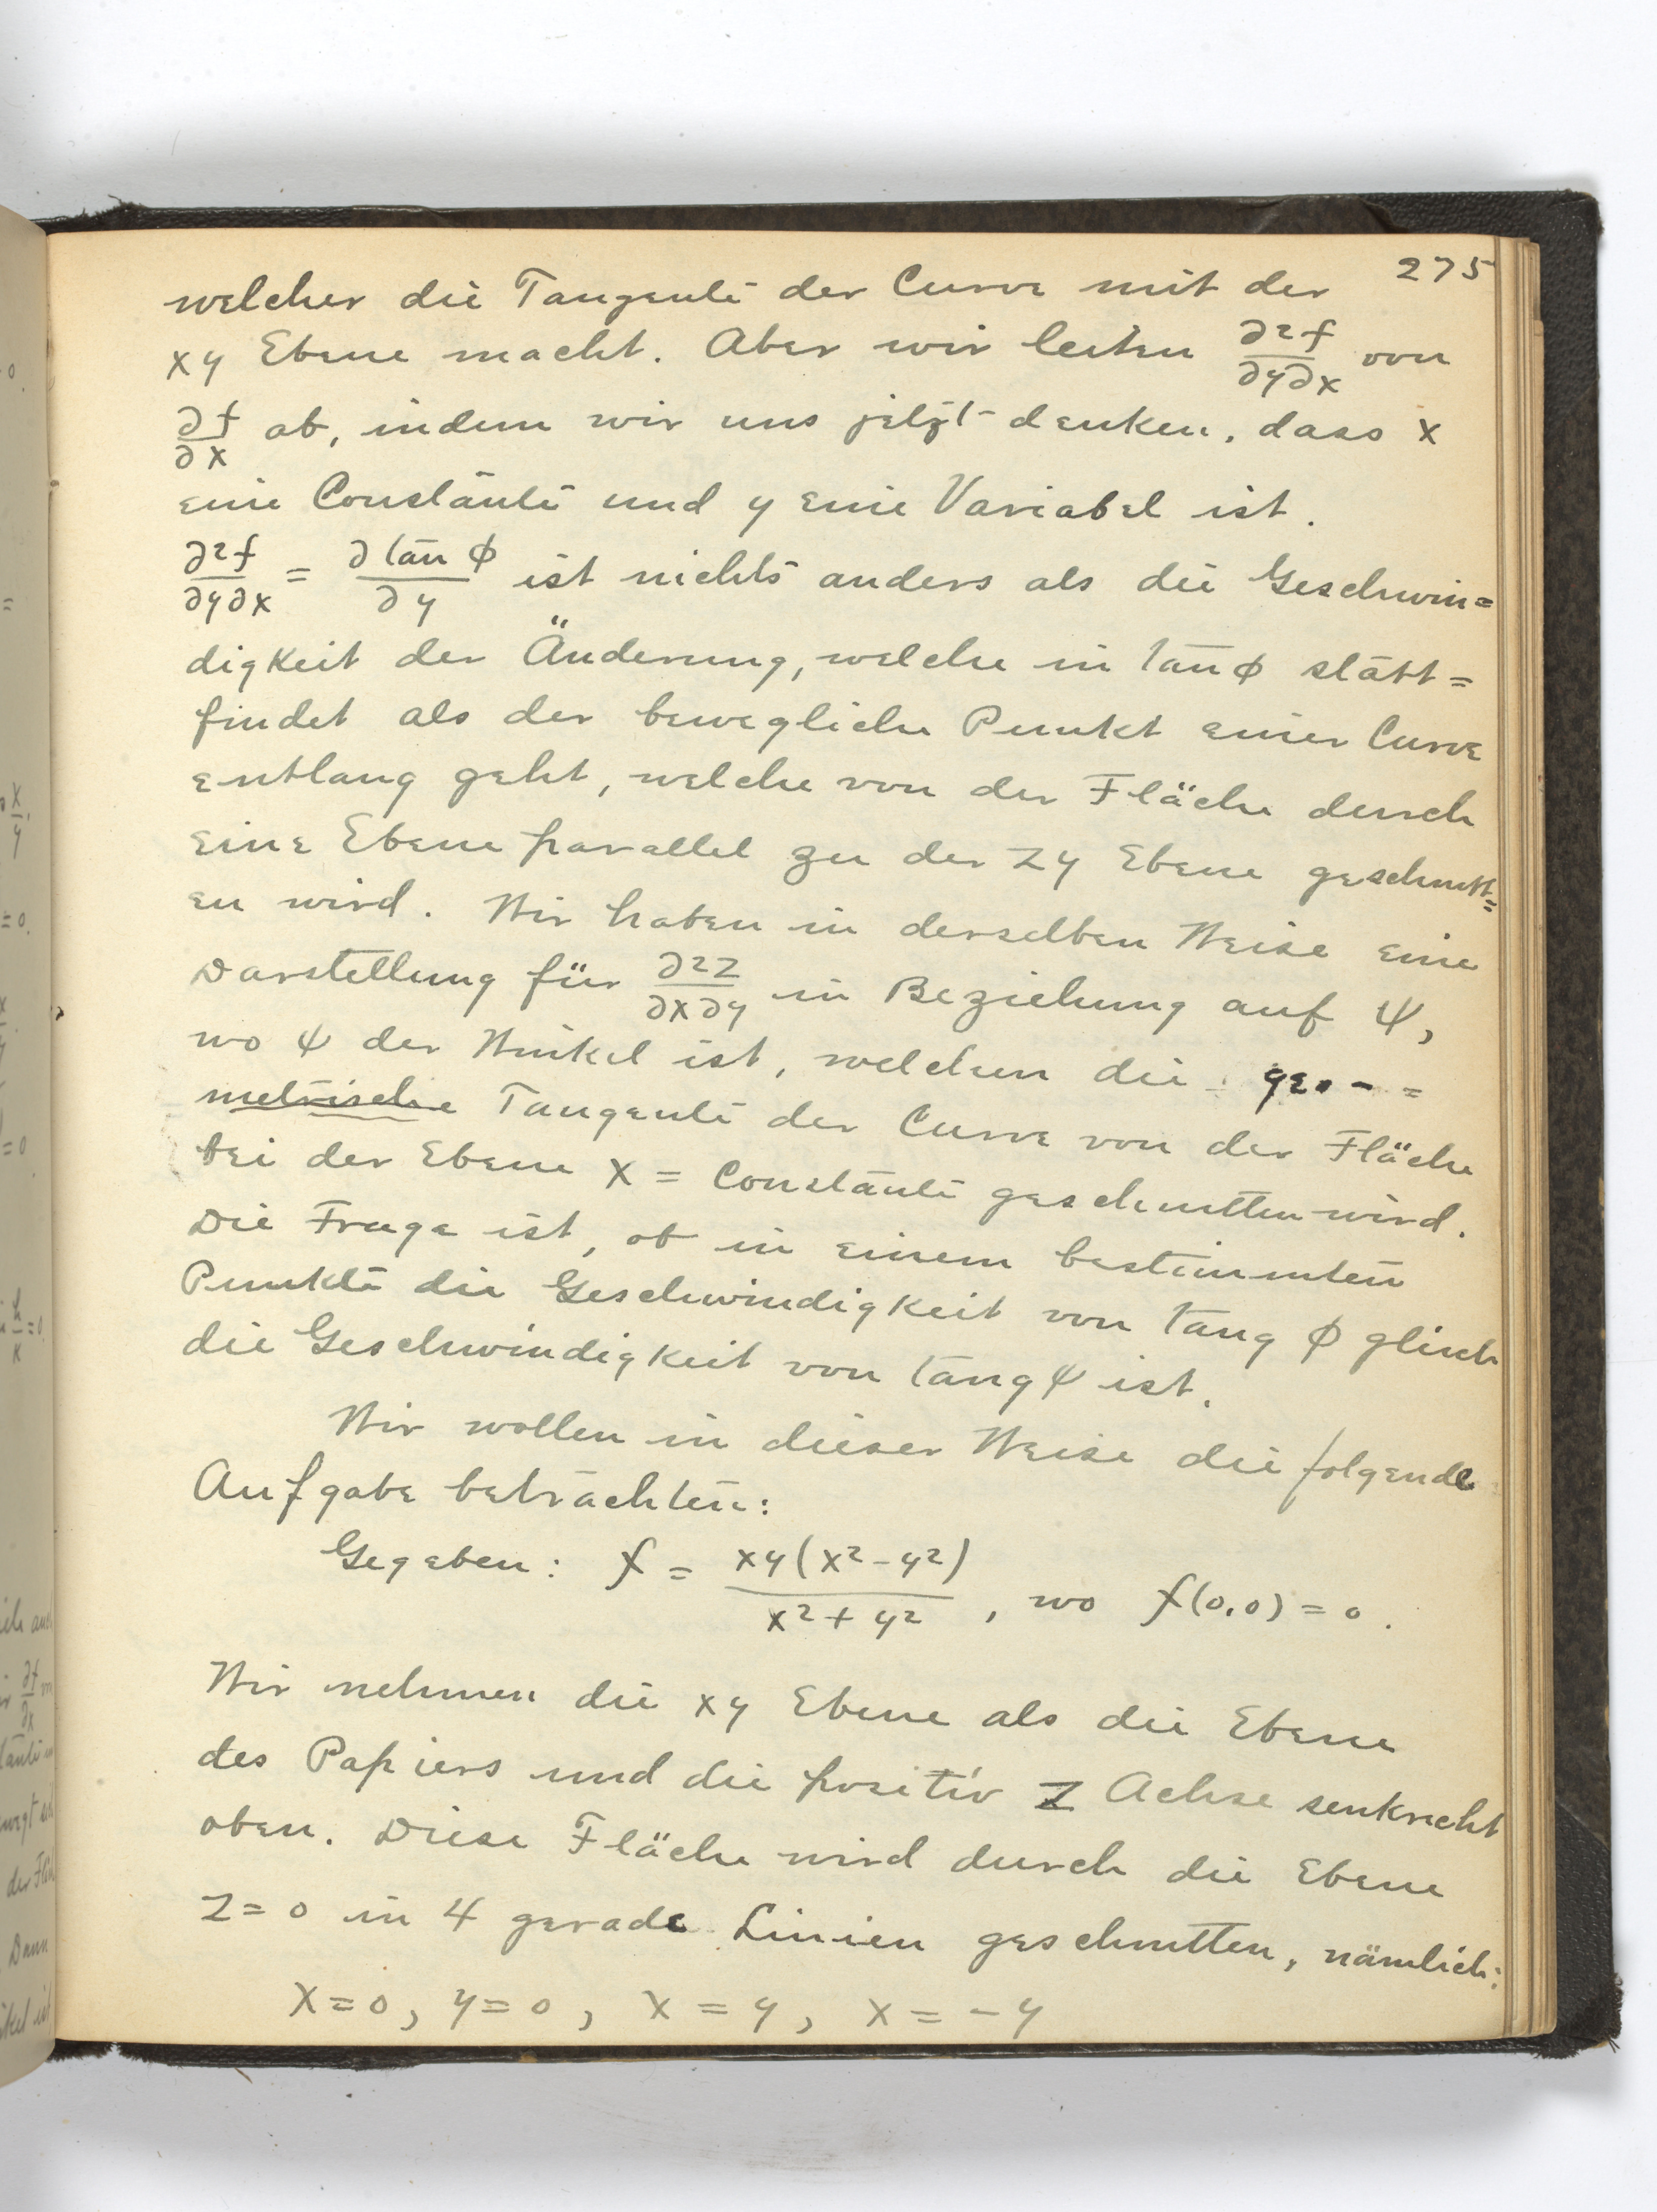 275
welcher die Tangente der Curve mit der
xy Ebene macht. Aber wir leiten ∂²f/∂y∂x von
∂f/∂x ab, indem wir uns jetzt denken, dass x
eine Constante und y eine Variabel ist.
∂²f/∂y∂x = ∂ tan φ/∂y ist nichts anders als die Geschwin=
digkeit der Änderung, welche in tan φ statt=
findet als der bewegliche Punkt einer Curve
entlang geht, welche von der Fläche durch
eine Ebene parallel zu der zy Ebene geschnitt=
en wird. Wir haben in derselben Weise eine
Darstellung für ∂²z/∂x∂y in Beziehung auf ψ,
wo ψ der Winkel ist, welchen die geo-=
metrische Tangente der Curve von der Fläche
bei der Ebene x = Constante geschnitten wird.
Die Frage ist, ob in einem bestimmten
Punkte die Geschwindigkeit von tang φ gleich
die Geschwindigkeit von tang ψ ist.
Wir wollen in dieser Weise die folgende
Aufgabe betrachten:
Gegeben: f = xy(x²-y²)/x²+y², wo f(0,0) = 0.
Wir nehmen die xy Ebene als die Ebene
des Papiers und die positiv Z Achse senkrecht
oben. Diese Fläche wird durch die Ebene
z=0 in 4 gerade Linien geschnitten, nämlich:
x=0, y=0, x=y, x=-y